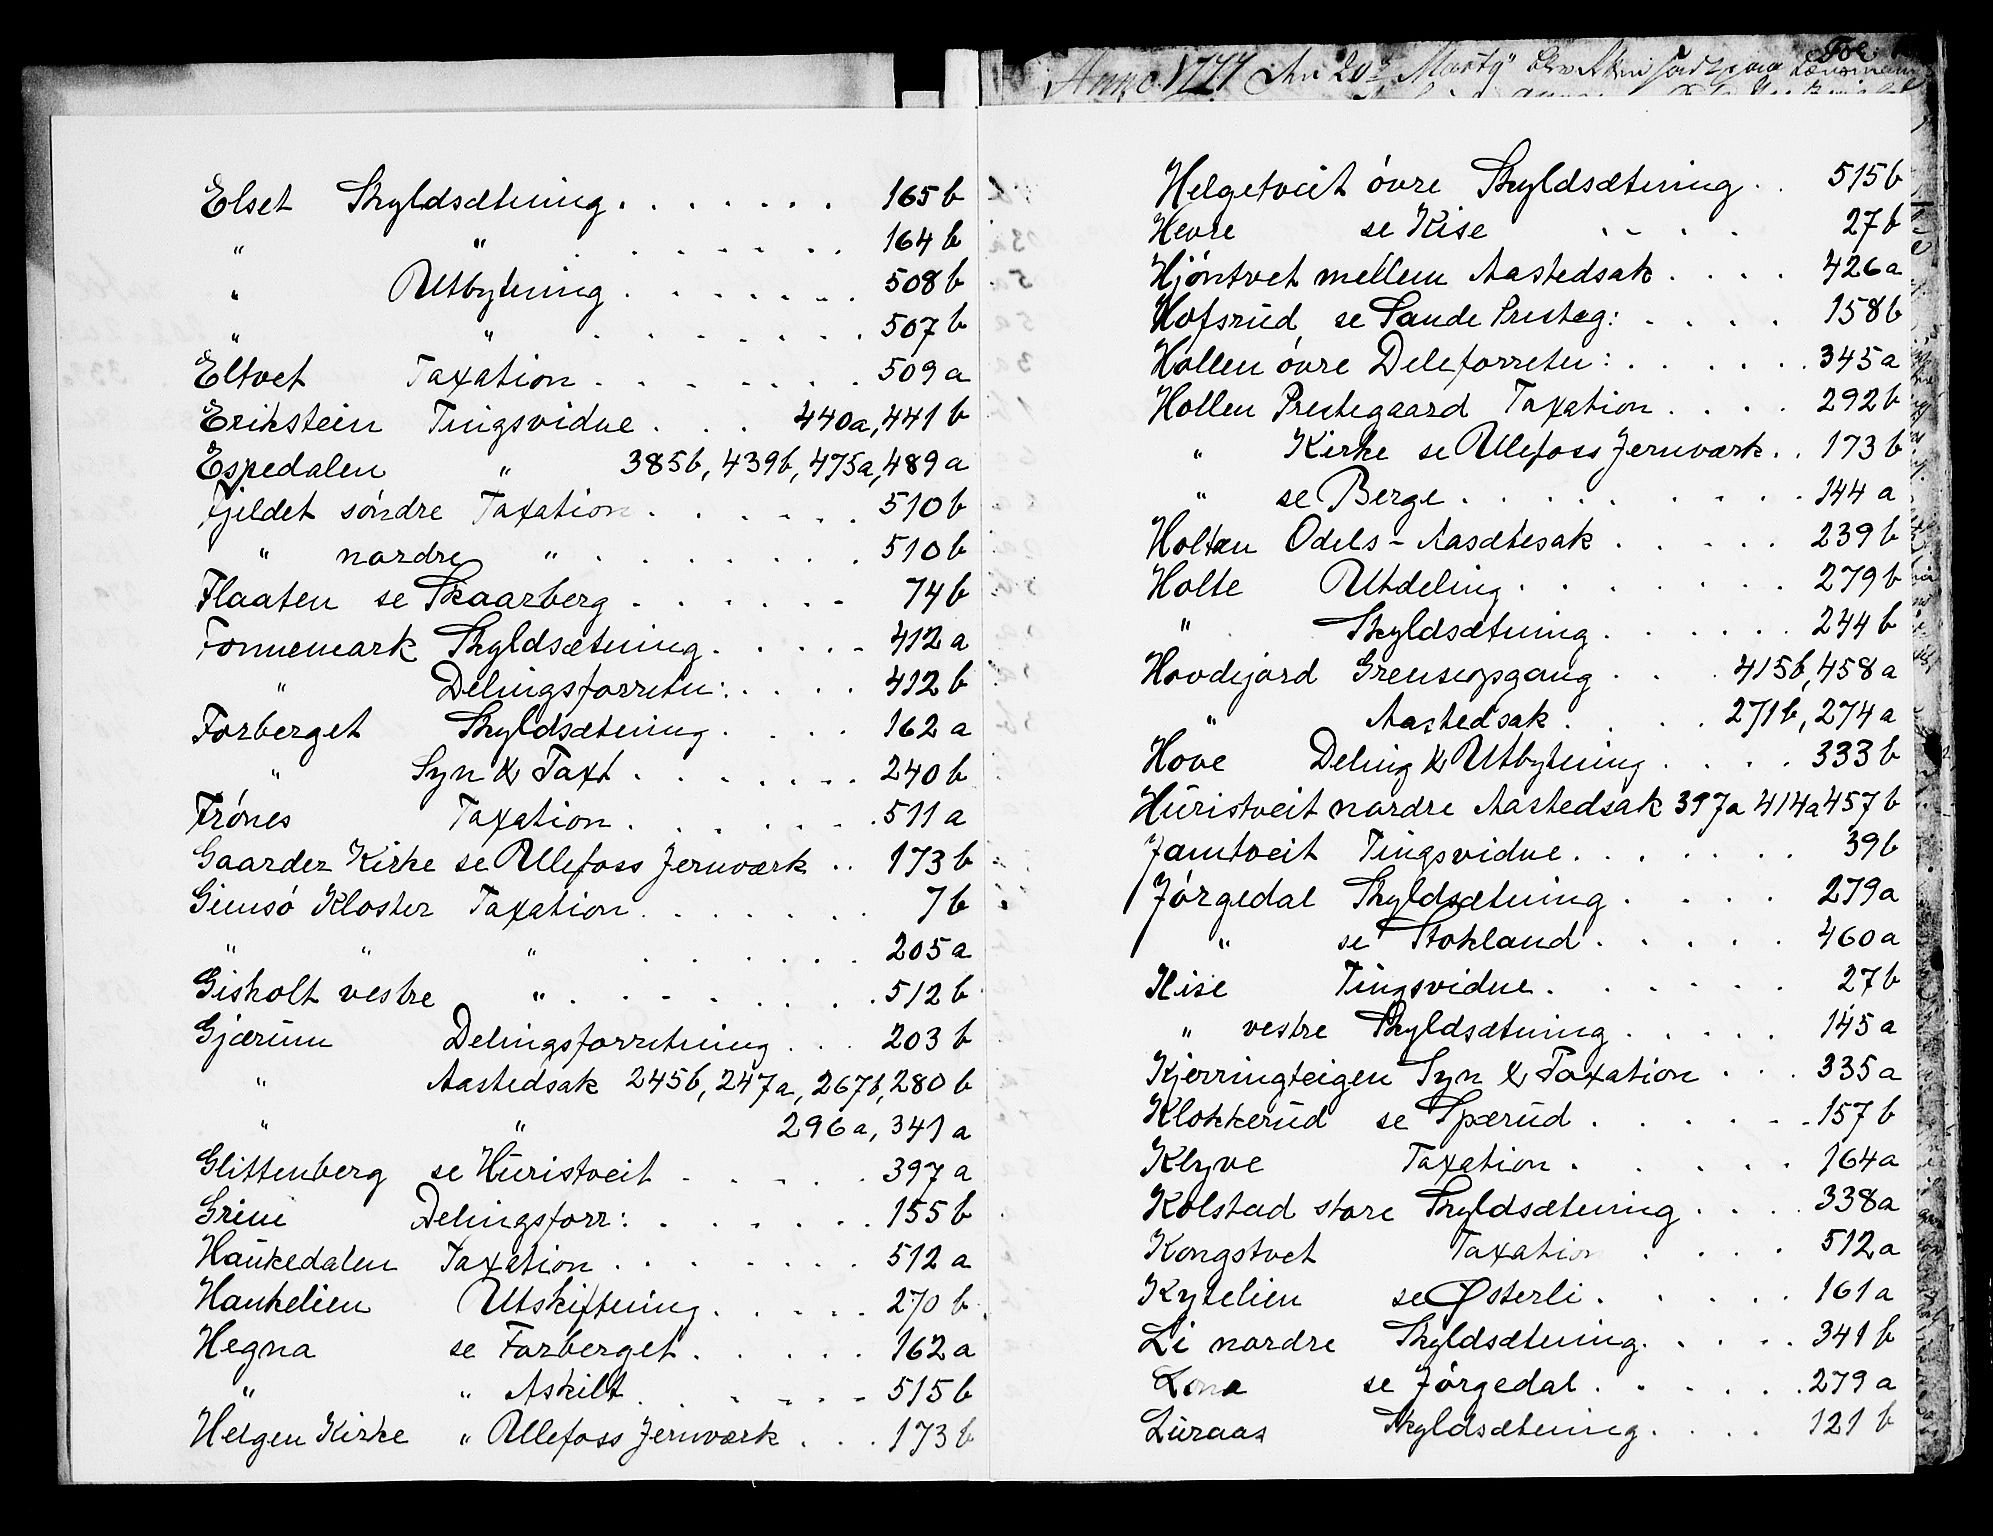 Elset Skyldsætning . . . . . . . 165 b
" " . . . . . . 164 b
" Utbytning . . . . . . . 508 b
" " . . . . . . . 507 b
Eltvet Taxation . . . . . . . 509 a
Erikstein Tingsvidne . . . 440a, 441 b
Espedalen " 385b, 439b, 475a, 489 a
Fjeldet söndre Taxation . . . . . . 510 b
" nordre " . . . . . . . 510 b
Flaaten se Skaarberg . . . . . . 74 b
Fonnemark Skyldsætning . . . . . 412 a
" Delingsforretn: . . . . 412 b
Forberget Skyldsætning . . . . 162 a
" Syn & Taxt . . . . . . 240 b
Frónes Taxation . . . . . . . 511 a
Gaarder Kirke se Ullefoss Jernværk . . 173 b
Gimsö Kloster Taxation . . . . . . . 7 b
" " " . . . . . . 205 a
Gisholt vestre " . . . . . . . . 512 b
Gjærum Delingsforretning . . . 203 b
" Aastedsak 245b, 247a, 267b, 280 b
" " 296a, 341 a
Glittenberg se Hüristveit . . . . . 397 a
Grini Delingsforr: . . . . . . . 155 b
Haukedalen Taxation . . . . . . . 512 a
Haukelien Utskiftning . . . . . 270 b
Hegna se Forberget . . . . . 162 a
" " Askilt . . . . . 515 b
Helgen Kirke " Ullefoss Jernværk . . . 173 b
Anno 1777 den 20de Marty
Fol.
Helgetveit óvre Skyldsætning . . 515 b
Hevre se Kise . . . . 27 b
Hjöntvet mellem Aastedsak . . . . 426 a
Hofsrud se Sande Presteg: . . . . 158 b
Hollen óvre Deleforretn: . . . . . . 345 a
Hollen Prestegaard Taxation . . . . 292 b
" Kirke se Ullefoss Jernværk . . 173 b
" se Berge . . . . . . . . . 144 a
Holtan Odels-Aasætesak . . . . . 239 b
Holte Utdeling . . . . . . . 279 b
" Skyldsætning . . . . . . 244 b
Hovdejord Grenseopgang . . . 415b, 458 a
" Aastedsak . . . . 271b, 274 a
Hove Deling & Utbytning . . . . 333 b
Hüristveit nordre Aastedsak 397a 414a 457 b
Jamtveit Tingsvidne . . . . . . . 39 b
Jörgedal Skyldsætning . . . . 279 a
" se Stokland . . . . . 460 a
Kise Tingsvidne . . . . . . 27 b
" vestre Skyldsætning . . . . . 145 a
Kjerringteigen Syn & Taxation . . . 335 a
Klokkerud se Spærud . . . . . . 157 b
Klyve Taxation . . . . . 164 a
Kolstad store Skyldsætning . . . . 338 a
Kongstvet Taxation . . . . 512 a
Kytelien se Østerli . . . . . 161 a
Li nordre Skyldsætning . . . . 341 b
Lona se Jörgedal . . . . . . 279 a
Lüraas Skyldsætning . . . . 121 b